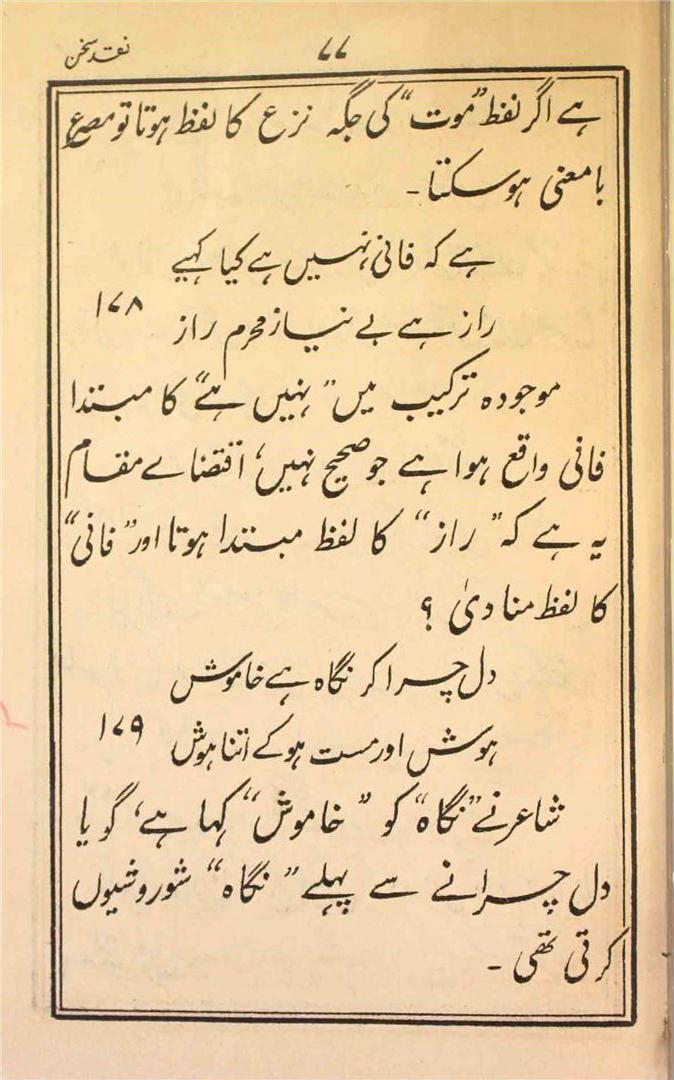 ۷۷ نقد سخن
ہے اگر لفظ ”موت“ کی جگہ نزع کا لفظ ہوتا تو مصرع
بامعنی ہوسکتا۔
ہے کہ فانی نہیں ہے کیا کہیے
راز ہے بے نیاز محرم راز ۱۷۸
موجودہ ترکیب میں ”نہیں ہے“ کا مبتدا
فانی واقع ہوا ہے جو صحیح نہیں، اقتضاے مقام
یہ ہے کہ ”راز“ کا لفظ مبتدا ہوتا اور ”فانی“
کا لفظ منادیٰ ؟
دل چرا کر نگاہ ہے خاموش
ہوش اور مست ہو کے اتنا ہوش ۱۷۹
شاعر نے ”نگاہ“ کو ”خاموش“ کہا ہے، گویا
دل چرانے سے پہلے ”نگاہ“ شور و شیون
کرتی تھی۔